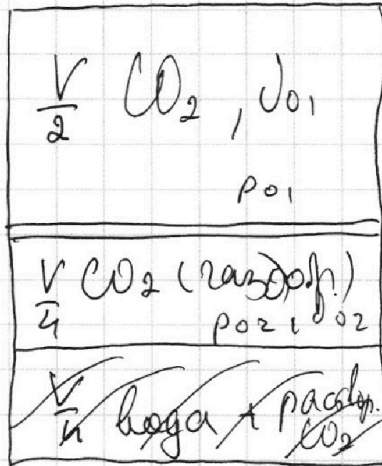 V/2 CO₂, ν₀₁
p₀₁
V/4 CO₂ (газообр.)
p₀₂, ν₀₂
V/4 вода + раствор. CO₂